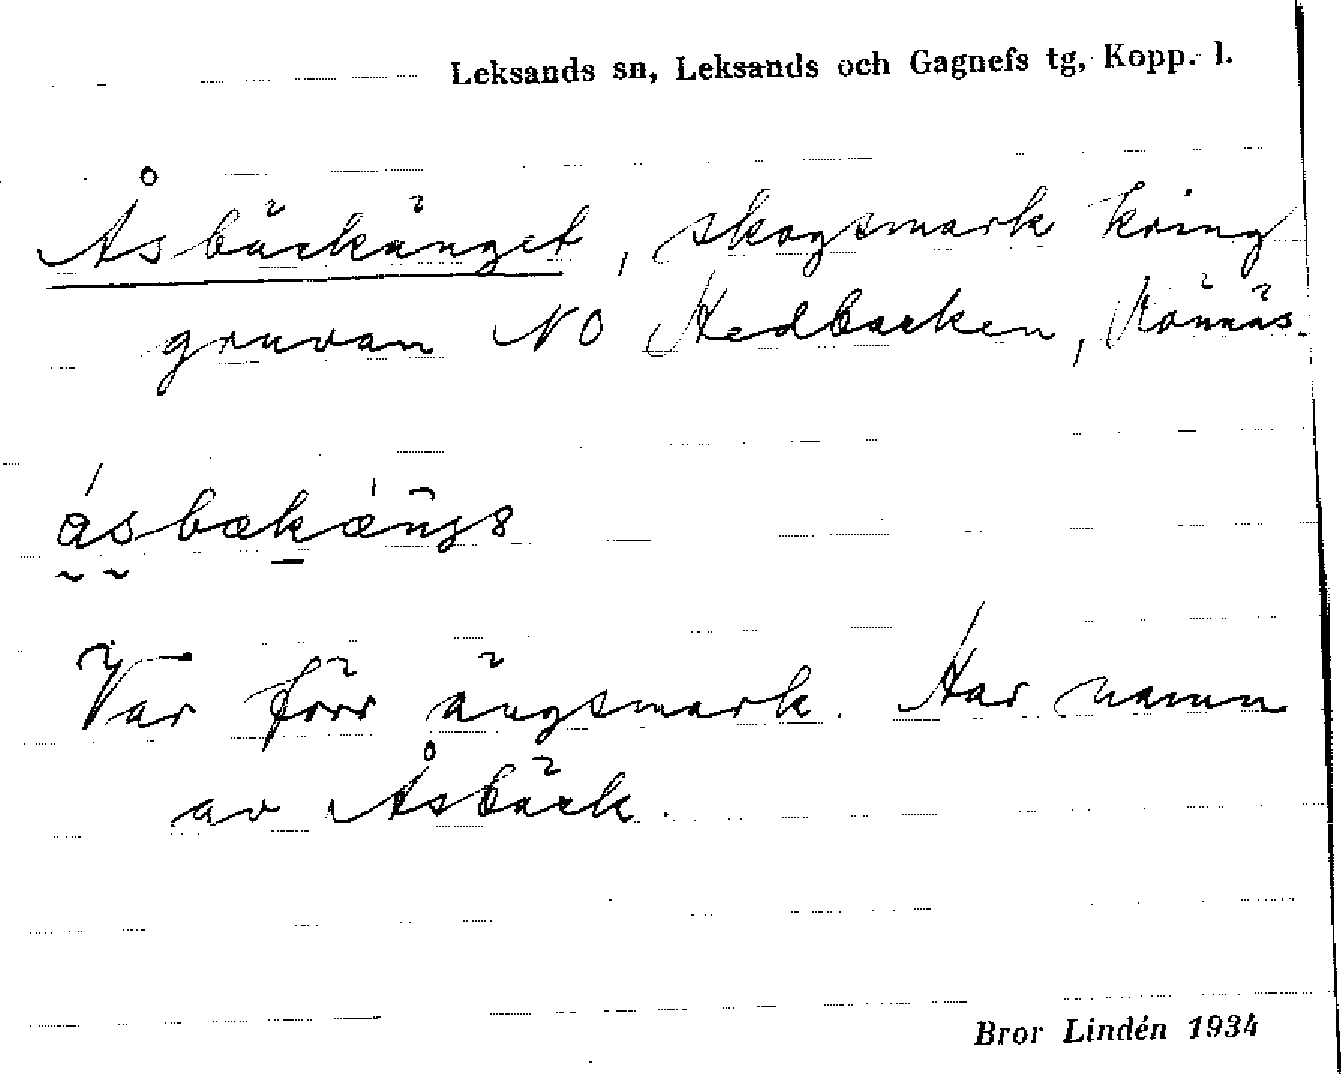 Leksands sn, Leksands och Gagnefs tg, Kopp. l.
Åsbäckänget, skogsmark kring
gruvan NO Hedbacken, Rönnäs.
åsbækæŋgə
Var förr ängsmark. Har namn
av Åsbäck.
Bror Lindén 1934